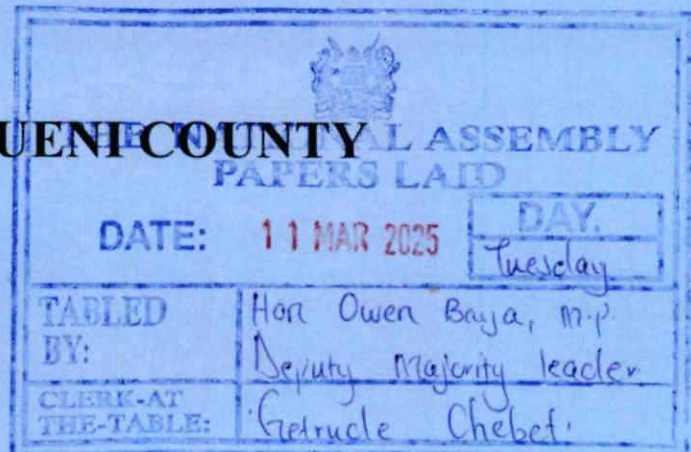 UENI COUNTY
THE NATIONAL ASSEMBLY
PAPERS LAID
DATE: 11 MAR 2025
DAY.
Tuesday
TABLED BY:
Hon Owen Baya, M.P.
Deputy Majority leader
CLERK-AT THE-TABLE:
Getrude Chebet